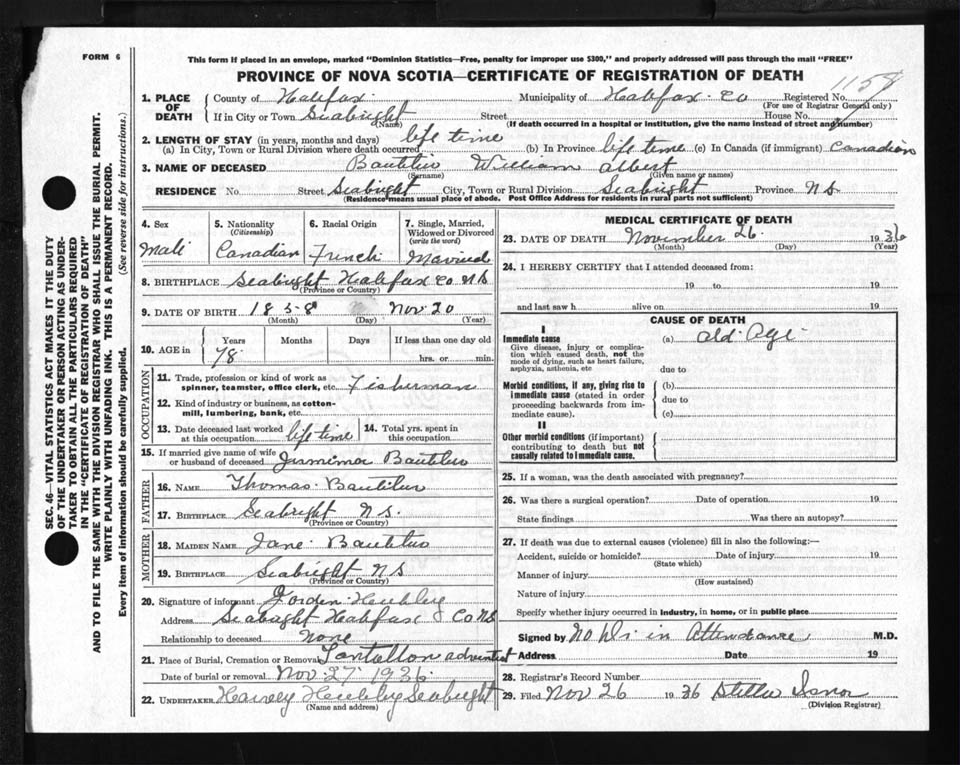 FORM 6
This form if placed in an envelope, marked "Dominion Statistics—Free, penalty for improper use $300," and properly addressed will pass through the mail "FREE"
PROVINCE OF NOVA SCOTIA—CERTIFICATE OF REGISTRATION OF DEATH
1158
1. PLACE OF DEATH
County of Halifax Municipality of Halifax Co Registered No.
(For use of Registrar General only)
If in City or Town Seabright Street House No.
(Name) (If death occurred in a hospital or institution, give the name instead of street and number)
2. LENGTH OF STAY (in years, months and days) life time
(a) In City, Town or Rural Division where death occurred (b) In Province life time (c) In Canada (if immigrant) Canadian
3. NAME OF DECEASED Bautilus William Albert
(Surname) (Given name or names)
RESIDENCE No Street Seabright City, Town or Rural Division Seabright Province N S.
(Residence means usual place of abode. Post Office Address for residents in rural parts not sufficient)
4. Sex 5. Nationality 6. Racial Origin 7. Single, Married,
(Citizenship) Widowed or Divorced
(write the word)
Male Canadian French Married
8. BIRTHPLACE Seabright Halifax Co N S
(Province or Country)
9. DATE OF BIRTH 1858 Nov 20
(Month) (Day) (Year)
10. AGE in Years Months Days If less than one day old
78 hrs. or min.
OCCUPATION
11. Trade, profession or kind of work as
spinner, teamster, office clerk, etc. Fisherman
12. Kind of industry or business, as cotton-
mill, lumbering, bank, etc.
13. Date deceased last worked
at this occupation life time
14. Total yrs. spent in
this occupation
15. If married give name of wife
or husband of deceased Jemima Bautilus
FATHER
16. NAME Thomas Bautilus
17. BIRTHPLACE Seabright N S.
(Province or Country)
MOTHER
18. MAIDEN NAME Jane Bautilus
19. BIRTHPLACE Seabright N S
(Province or Country)
20. Signature of informant Gorden Hubley
Address Seabright Halifax Co N S
Relationship to deceased None
21. Place of Burial, Cremation or Removal Tantallon adventist
Date of burial or removal Nov. 27 1936
22. UNDERTAKER Harvey Hubley Seabright
(Name and address)
MEDICAL CERTIFICATE OF DEATH
23. DATE OF DEATH November 26 1936
(Month) (Day) (Year)
24. I HEREBY CERTIFY that I attended deceased from:
19 to 19
and last saw h alive on 19
CAUSE OF DEATH
I
Immediate cause (a) old Age
Give disease, injury or complica-
tion which caused death, not the
mode of dying, such as heart failure,
asphyxia, asthenia, etc
due to
Morbid conditions, if any, giving rise to
immediate cause (stated in order
proceeding backwards from im-
mediate cause).
(b)
due to
(c)
II
Other morbid conditions (if important)
contributing to death but not
causally related to immediate cause.
25. If a woman, was the death associated with pregnancy?
26. Was there a surgical operation? Date of operation 19
State findings Was there an autopsy?
27. If death was due to external causes (violence) fill in also the following:—
Accident, suicide or homicide? Date of injury 19
(State which)
Manner of injury
(How sustained)
Nature of injury
Specify whether injury occurred in industry, in home, or in public place
Signed by No Dr in Attendance M.D.
Address Date 19
28. Registrar's Record Number
29. Filed Nov 26 1936 Stella Isnor
(Division Registrar)
SEC. 46—VITAL STATISTICS ACT MAKES IT THE DUTY
OF THE UNDERTAKER OR PERSON ACTING AS UNDER-
TAKER TO OBTAIN ALL THE PARTICULARS REQUIRED
IN THE "CERTIFICATE OF REGISTRATION OF DEATH"
AND TO FILE THE SAME WITH THE DIVISION REGISTRAR WHO SHALL ISSUE THE BURIAL PERMIT.
WRITE PLAINLY WITH UNFADING INK. THIS IS A PERMANENT RECORD.
Every item of information should be carefully supplied. (See reverse side for instructions.)